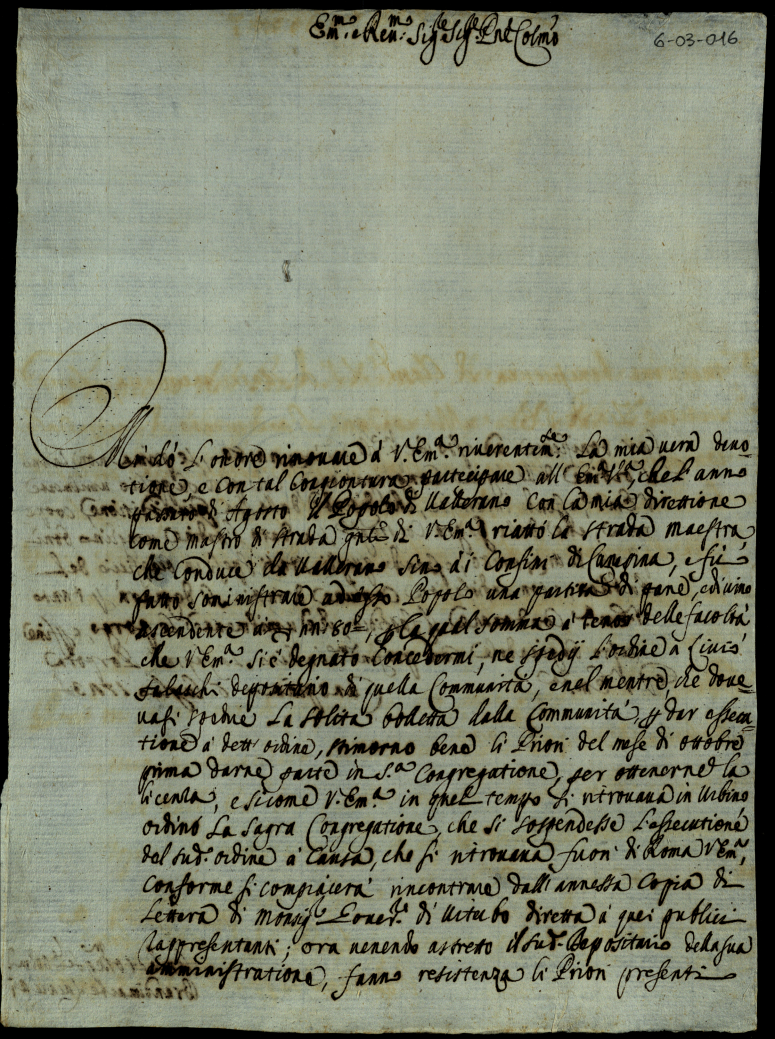 Em.mo e Rev.mo Sig.re Sig.re Pne Colmo
6-03-016
Mi dò l'onore rinovare à V. Em.a riverentem.te la mia vera devo
tione, e con tal congiontura partecipare all' Em.a V.a, che l'anno
passato di Agosto il Popolo di Vallerano con la mia direttione
come mastro di strada gnle di V. Em.a riattò la strada maestra
che conduce da Vallerano sino à i Confini di Canepina, e fù
fatto soministrare ad esso Popolo una partita di pane, e di vino
ascendente à 80, p la qual somma à tenor delle facoltà
che V. Em.a si è degnato concedermi, ne spedij l'ordine à
depositario di quella Communità, e nel mentre, che dove
vasi spedire la solita bolletta dalla Communità, p dar essecu
tione à dett' ordine, stimorno bene li Priori del mese di ottobre
prima darne parte in S.a Congregatione, per ottenerne la
licenza, e sicome V. Em.a in quel tempo si ritrovava in Urbino
ordinò la Sagra Congregatione, che si sospendesse l'essecutione
del sud.o ordine à causa, che si ritrovava fuori di Roma V. Em.a,
conforme si compiacerà rincontrare dall' annessa Copia di
lettera di Monsig.re Gover.re di Viterbo diretta à quei publici
Rappresentanti; ora venendo astretto il sud.o Depositario della sua
amministratione, fanno resistenza li Priori presenti